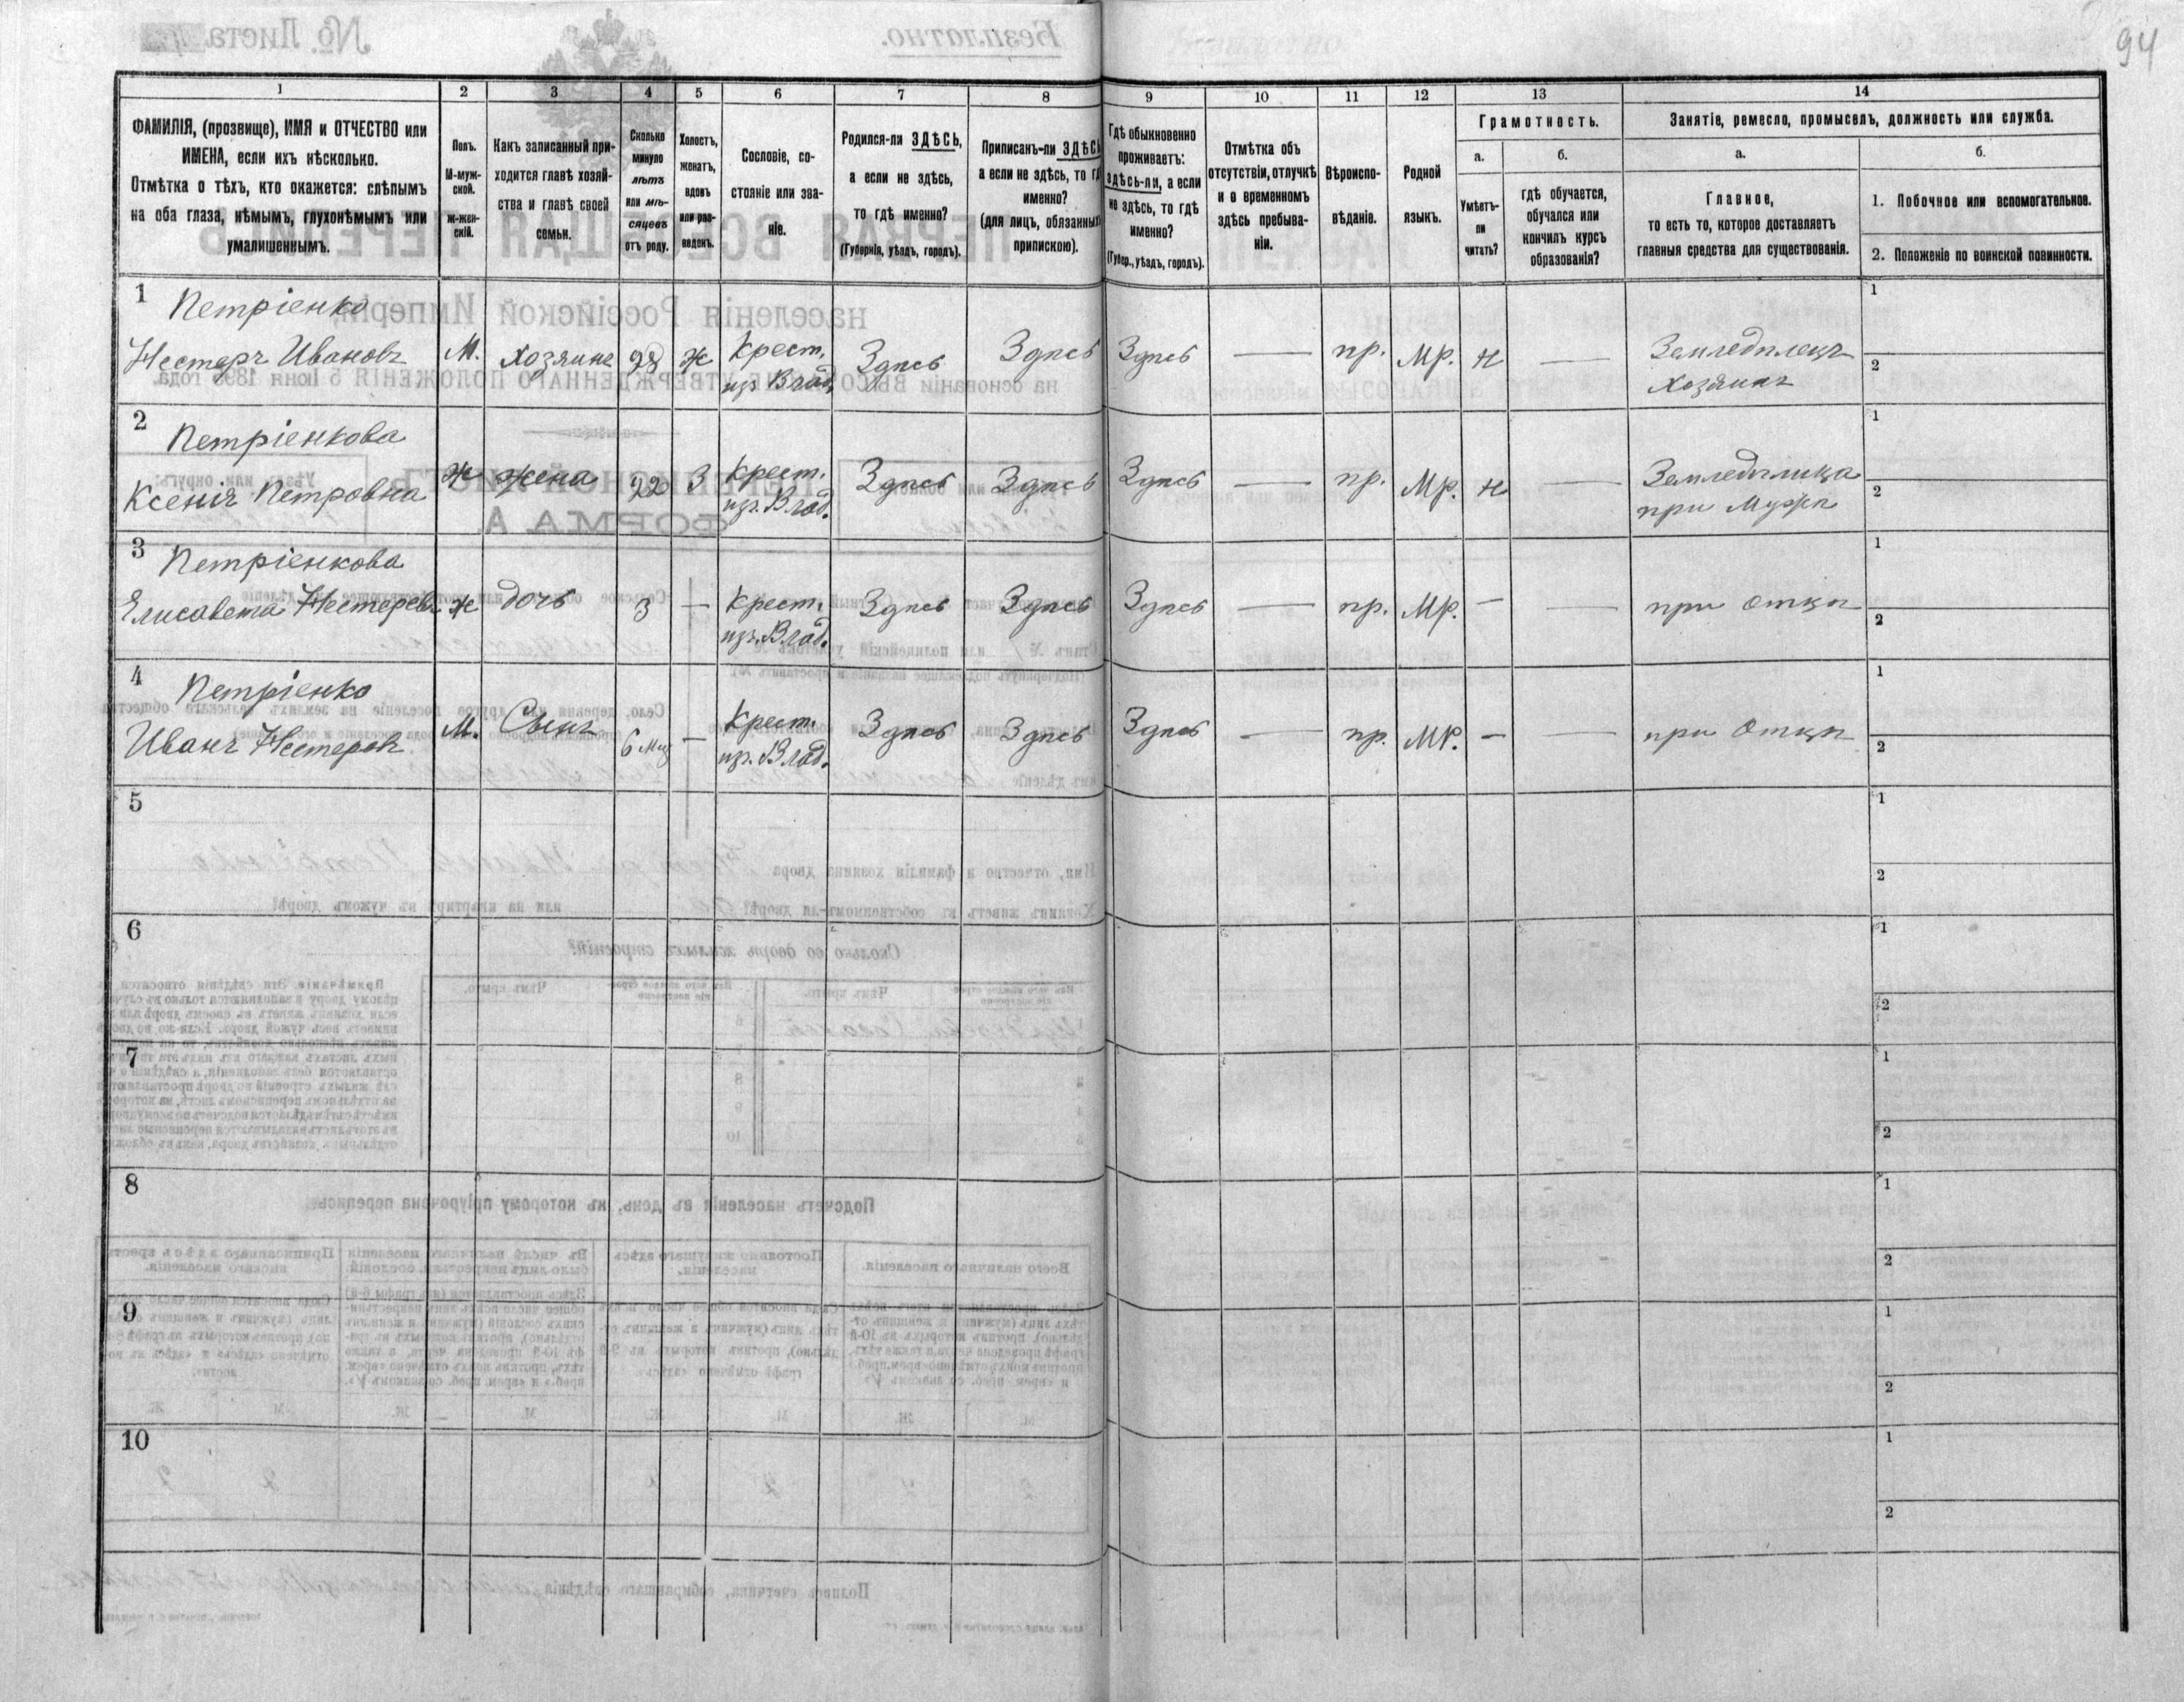 94
1 2 3 4 5 6 7 8 9 10 11 12 13 14
ФАМИЛІЯ, (прозвище), ИМЯ и ОТЧЕСТВО или
ИМЕНА, если ихъ нѣсколько.
Отмѣтка о тѣхъ, кто окажется: слѣпымъ
на оба глаза, нѣмымъ, глухонѣмымъ или
умалишеннымъ.
Полъ.
М-муж-
ской.
Ж-жен-
скій.
Какъ записанный при-
ходится главѣ хозяй-
ства и главѣ своей
семьи.
Сколько
минуло
лѣтъ
или мѣ-
сяцевъ
отъ роду.
Холостъ,
женатъ,
вдовъ
или раз-
веденъ.
Сословіе, со-
стояніе или зва-
ніе.
Родился-ли ЗДѢСЬ,
а если не здѣсь,
то гдѣ именно?
(Губернія, уѣздъ, городъ).
Приписанъ-ли ЗДѢСЬ
а если не здѣсь, то гдѣ
именно?
(для лицъ, обязанныхъ
припискою).
Гдѣ обыкновенно
проживаетъ:
здѣсь-ли, а если
не здѣсь, то гдѣ
именно?
(Губер., уѣздъ, городъ).
Отмѣтка объ
отсутствіи, отлучкѣ
и о временномъ
здѣсь пребыва-
ніи.
Вѣроиспо-
вѣданіе.
Родной
языкъ.
Грамотность.
а.
Умѣетъ-
ли
читать?
б.
гдѣ обучается,
обучался или
кончилъ курсъ
образованія?
Занятіе, ремесло, промыселъ, должность или служба.
а.
Главное,
то есть то, которое доставляетъ
главныя средства для существованія.
б.
1. Побочное или вспомогательное.
2. Положеніе по воинской повинности.
1 Петріенко
Нестеръ Ивановъ М. Хозяинъ 28 Ж Крест. Здѣсь Здѣсь Здѣсь — пр. Мр. н — Земледѣлецъ 1
из Влад. Хозяинъ 2
2 Петріенкова
Ксенія Петровна Ж жена 22 З Крест. Здѣсь Здѣсь Здѣсь — пр. Мр. н — Земледѣлица 1
из. Влад. при Мужѣ 2
3 Петріенкова
Елисавета Нестерев. Ж дочь 3 — Крест. Здѣсь Здѣсь Здѣсь — пр. Мр. — — при Отцѣ 1
из. Влад. 2
4 Петріенко
Иванъ Нестеровъ М. Сынъ 6 Мц — Крест. Здѣсь Здѣсь Здѣсь — пр. Мр. — — при Отцѣ 1
из. Влад. 2
5 1
2
6 1
2
7 1
2
8 1
2
9 1
2
10 1
2